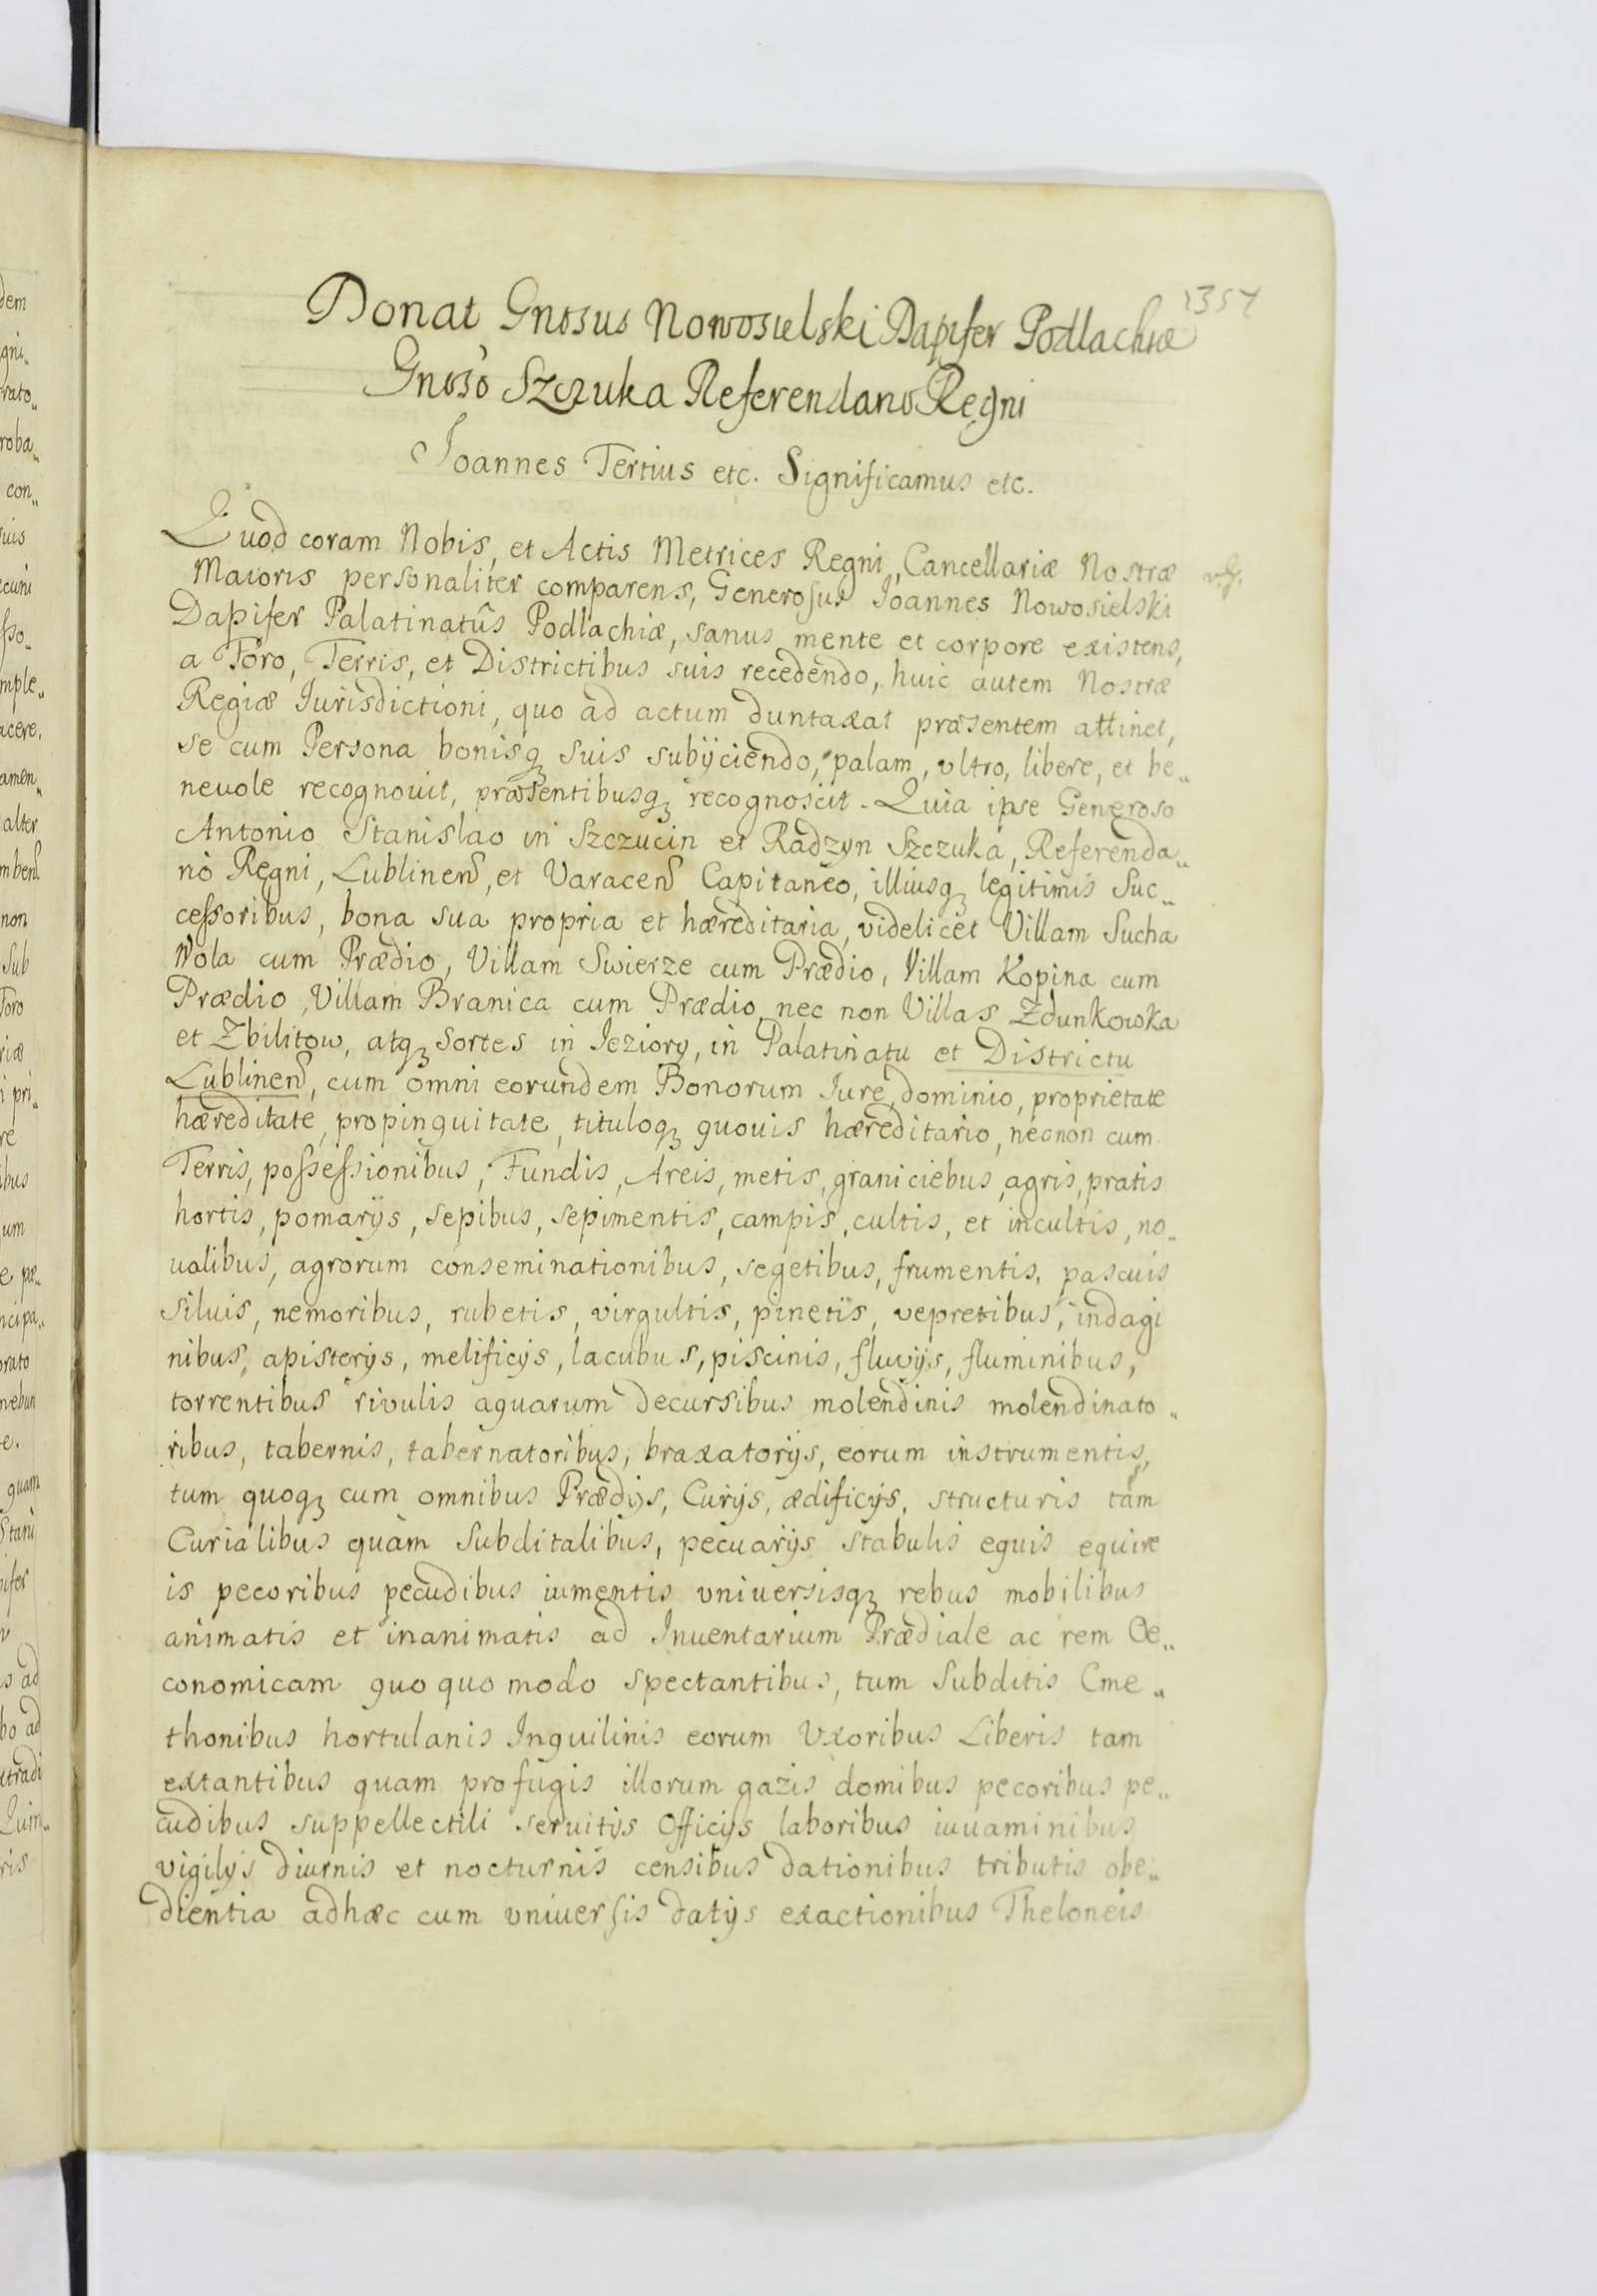 1357
Donat Gnosus Nowosielski Dapifer Podlachiæ
Gnoso Szczuka Referendario Regni
Joannes Tertius etc. Significamus etc.
Quod coram Nobis, et Actis Metrices Regni, Cancellariæ Nostræ
Maioris personaliter comparens, Generosus Joannes Nowosielski
Dapifer Palatinatûs Podlachiæ, sanus mente et corpore existens,
a Foro, Terris, et Districtibus suis recedendo, huic autem Nostræ
Regiæ Jurisdictioni, quo ad actum duntaxat præsentem attinet,
se cum Persona bonisq3 suis subijciendo, palam, vltro, libere, et be„
neuole recognouit, præsentibusq3 recognoscit. Quia ipse Generoso
Antonio Stanislao in Szczucin et Radzyn Szczuka, Referenda„
rio Regni, Lublinen, et Varacen Capitaneo, illiusq3 legitimis Suc„
cessoribus, bona sua propria et hæreditaria, videlicet Villam Sucha
Wola cum Prædio, Villam Swierze cum Prædio, Villam Kopina cum
Prædio, Villam Branica cum Prædio, nec non Villas Zdunkowka
et Zbilitow, atq3 Sortes in Jeziory, in Palatinatu et Districtu
Lublinen, cum omni eorundem Bonorum Jure, dominio, proprietate
hæreditate, propinquitate, tituloq3 quouis hæreditario, necnon cum
Terris, possessionibus, Fundis, Areis, metis, graniciebus, agris, pratis
hortis, pomarijs, sepibus, sepimentis, campis, cultis, et incultis, no„
ualibus, agrorum conseminationibus, segetibus, frumentis, pascuis
Siluis, nemoribus, rubetis, virgultis, pinetis, vepretibus, indagi
nibus, apisterijs, melificijs, lacubus, piscinis, fluvijs, fluminibus,
torrentibus rivulis aquarum decursibus molendinis molendinato„
ribus, tabernis, tabernatoribus, braxatorijs, eorum instrumentis,
tum quoq3 cum omnibus Prædijs, Curijs, ædificijs, structuris tam
Curialibus quàm Subditalibus, pecuarijs stabulis equis equire
is pecoribus pecudibus iumentis vniuersisq3 rebus mobilibus
animatis et inanimatis ad Inuentarium Prædiale ac rem Oe„
conomicam quo quo modo spectantibus, tum Subditis Cme„
thonibus hortulanis Inquilinis eorum Vxoribus Liberis tam
extantibus quam profugis illorum gazis domibus pecoribus pe„
cudibus suppellectili seruitijs Officijs laboribus iuuaminibus
vigilijs diurnis et nocturnis censibus dationibus tributis obe„
dientia adhæc cum vniuersis datijs exactionibus Theloneis